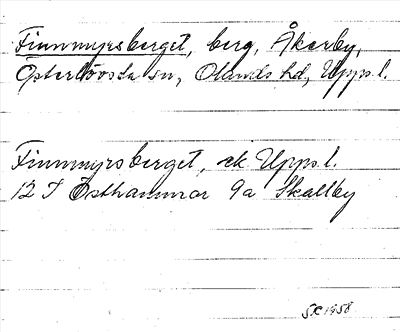 Finnmyrsberget, berg, Åkerby,
Österlövsta sn, Olands hd, Upps.l.
Finnmyrsberget, ek Upps.l.
12 I Östhammar 9a Skallby
SK 1958